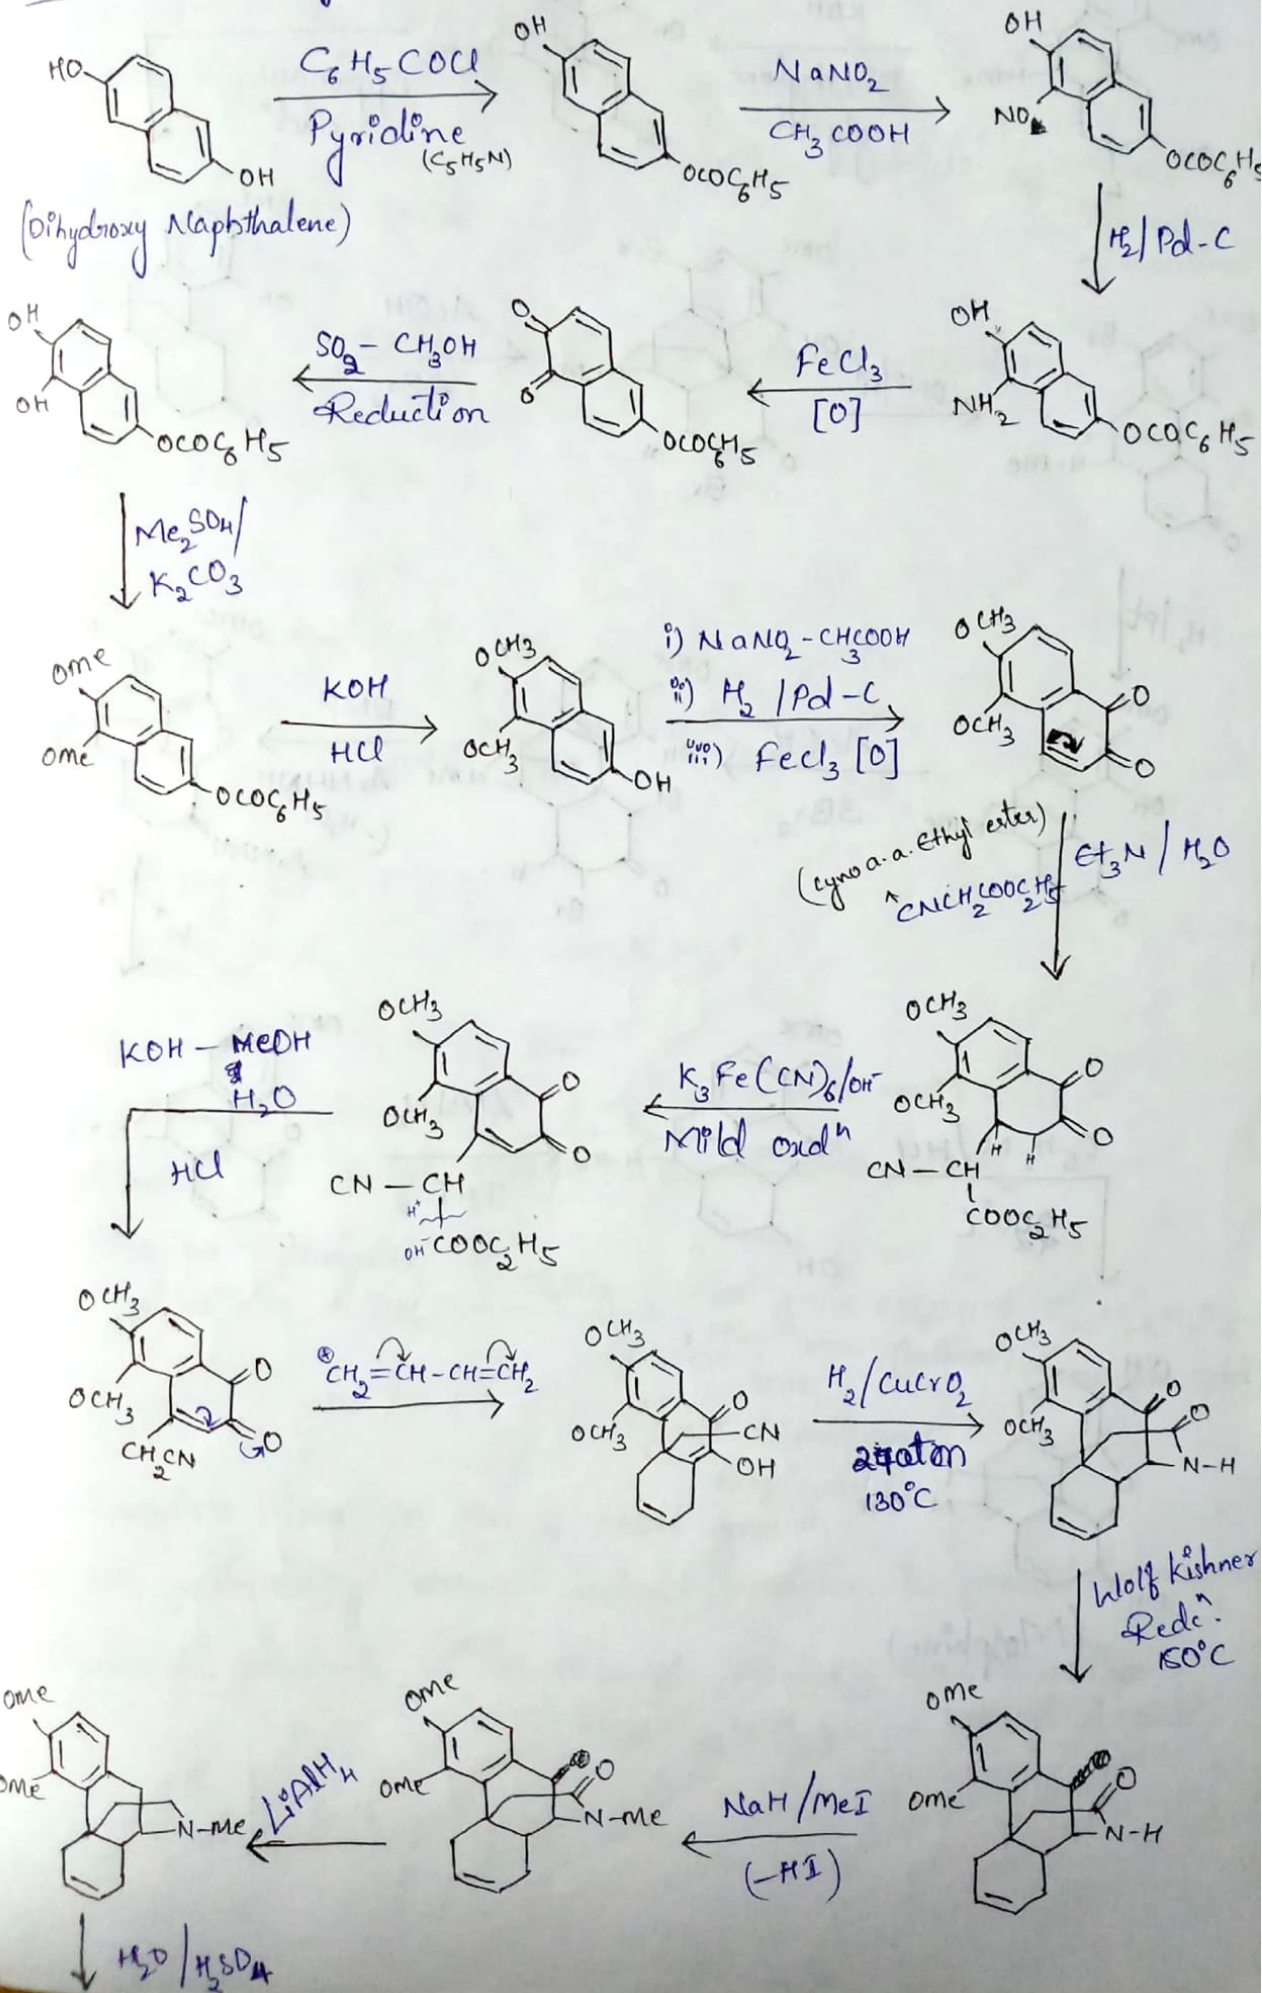 HO
OH
(Dihydroxy Naphthalene)
C6H5COCl
Pyridine
(C5H5N)
OH
OCOC6H5
NaNO2
CH3COOH
OH
NO
OCOC6H5
H2/Pd-C
OH
NH2
OCOC6H5
FeCl3
[O]
O
O
OCOC6H5
SO2- CH3OH
Reduction
OH
OH
OCOC6H5
Me2SO4/
K2CO3
OMe
OMe
OCOC6H5
KOH
HCl
OCH3
OCH3
OH
i) NaNO2-CH3COOH
ii) H2 /Pd-C
iii) FeCl3 [O]
OCH3
OCH3
O
O
(cyno a.a. Ethyl ester)
CNCH2COOC2H5
Et3N / H2O
OCH3
OCH3
O
O
H
H
CN-CH
COOC2H5
K3Fe(CN)6/OH-
Mild oxdn
OCH3
OCH3
O
O
CN-CH
H+
OH-
COOC2H5
KOH - MeOH
H2O
HCl
OCH3
OCH3
O
O
CH2CN
⊕CH2=CH-CH=CH2
OCH3
OCH3
O
CN
OH
H2/CuCrO2
130°C
OCH3
OCH3
O
O
N-H
Wolf Kishner
Redcn.
150°C
OMe
OMe
O
N-H
NaH/MeI
(-HI)
OMe
OMe
O
N-Me
LiAlH4
OMe
OMe
N-Me
H2O/H2SO4